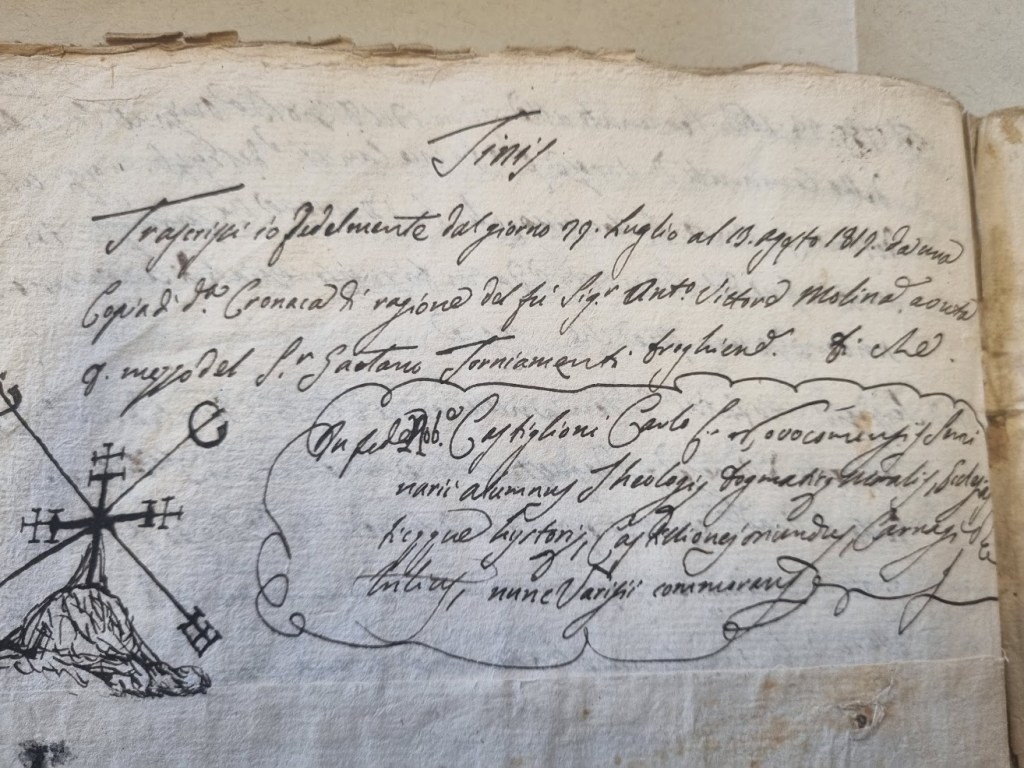 Finis
Trascrissi io fedelmente dal giorno 29. Luglio al 13. agosto 1819. da una
Copia di d.ta Cronaca di ragione del fù Sig.r Ant.o Vittore Molina, avuta
p. mezzo del S.r Gaetano Torniamenti
Nob. Castiglioni Carlo Novocomensis Semi
narii alumnus Theologiæ Dogmaticæ Moralis,
Hystoriæ, Castellione oriundus,
nunc Varisii commorans